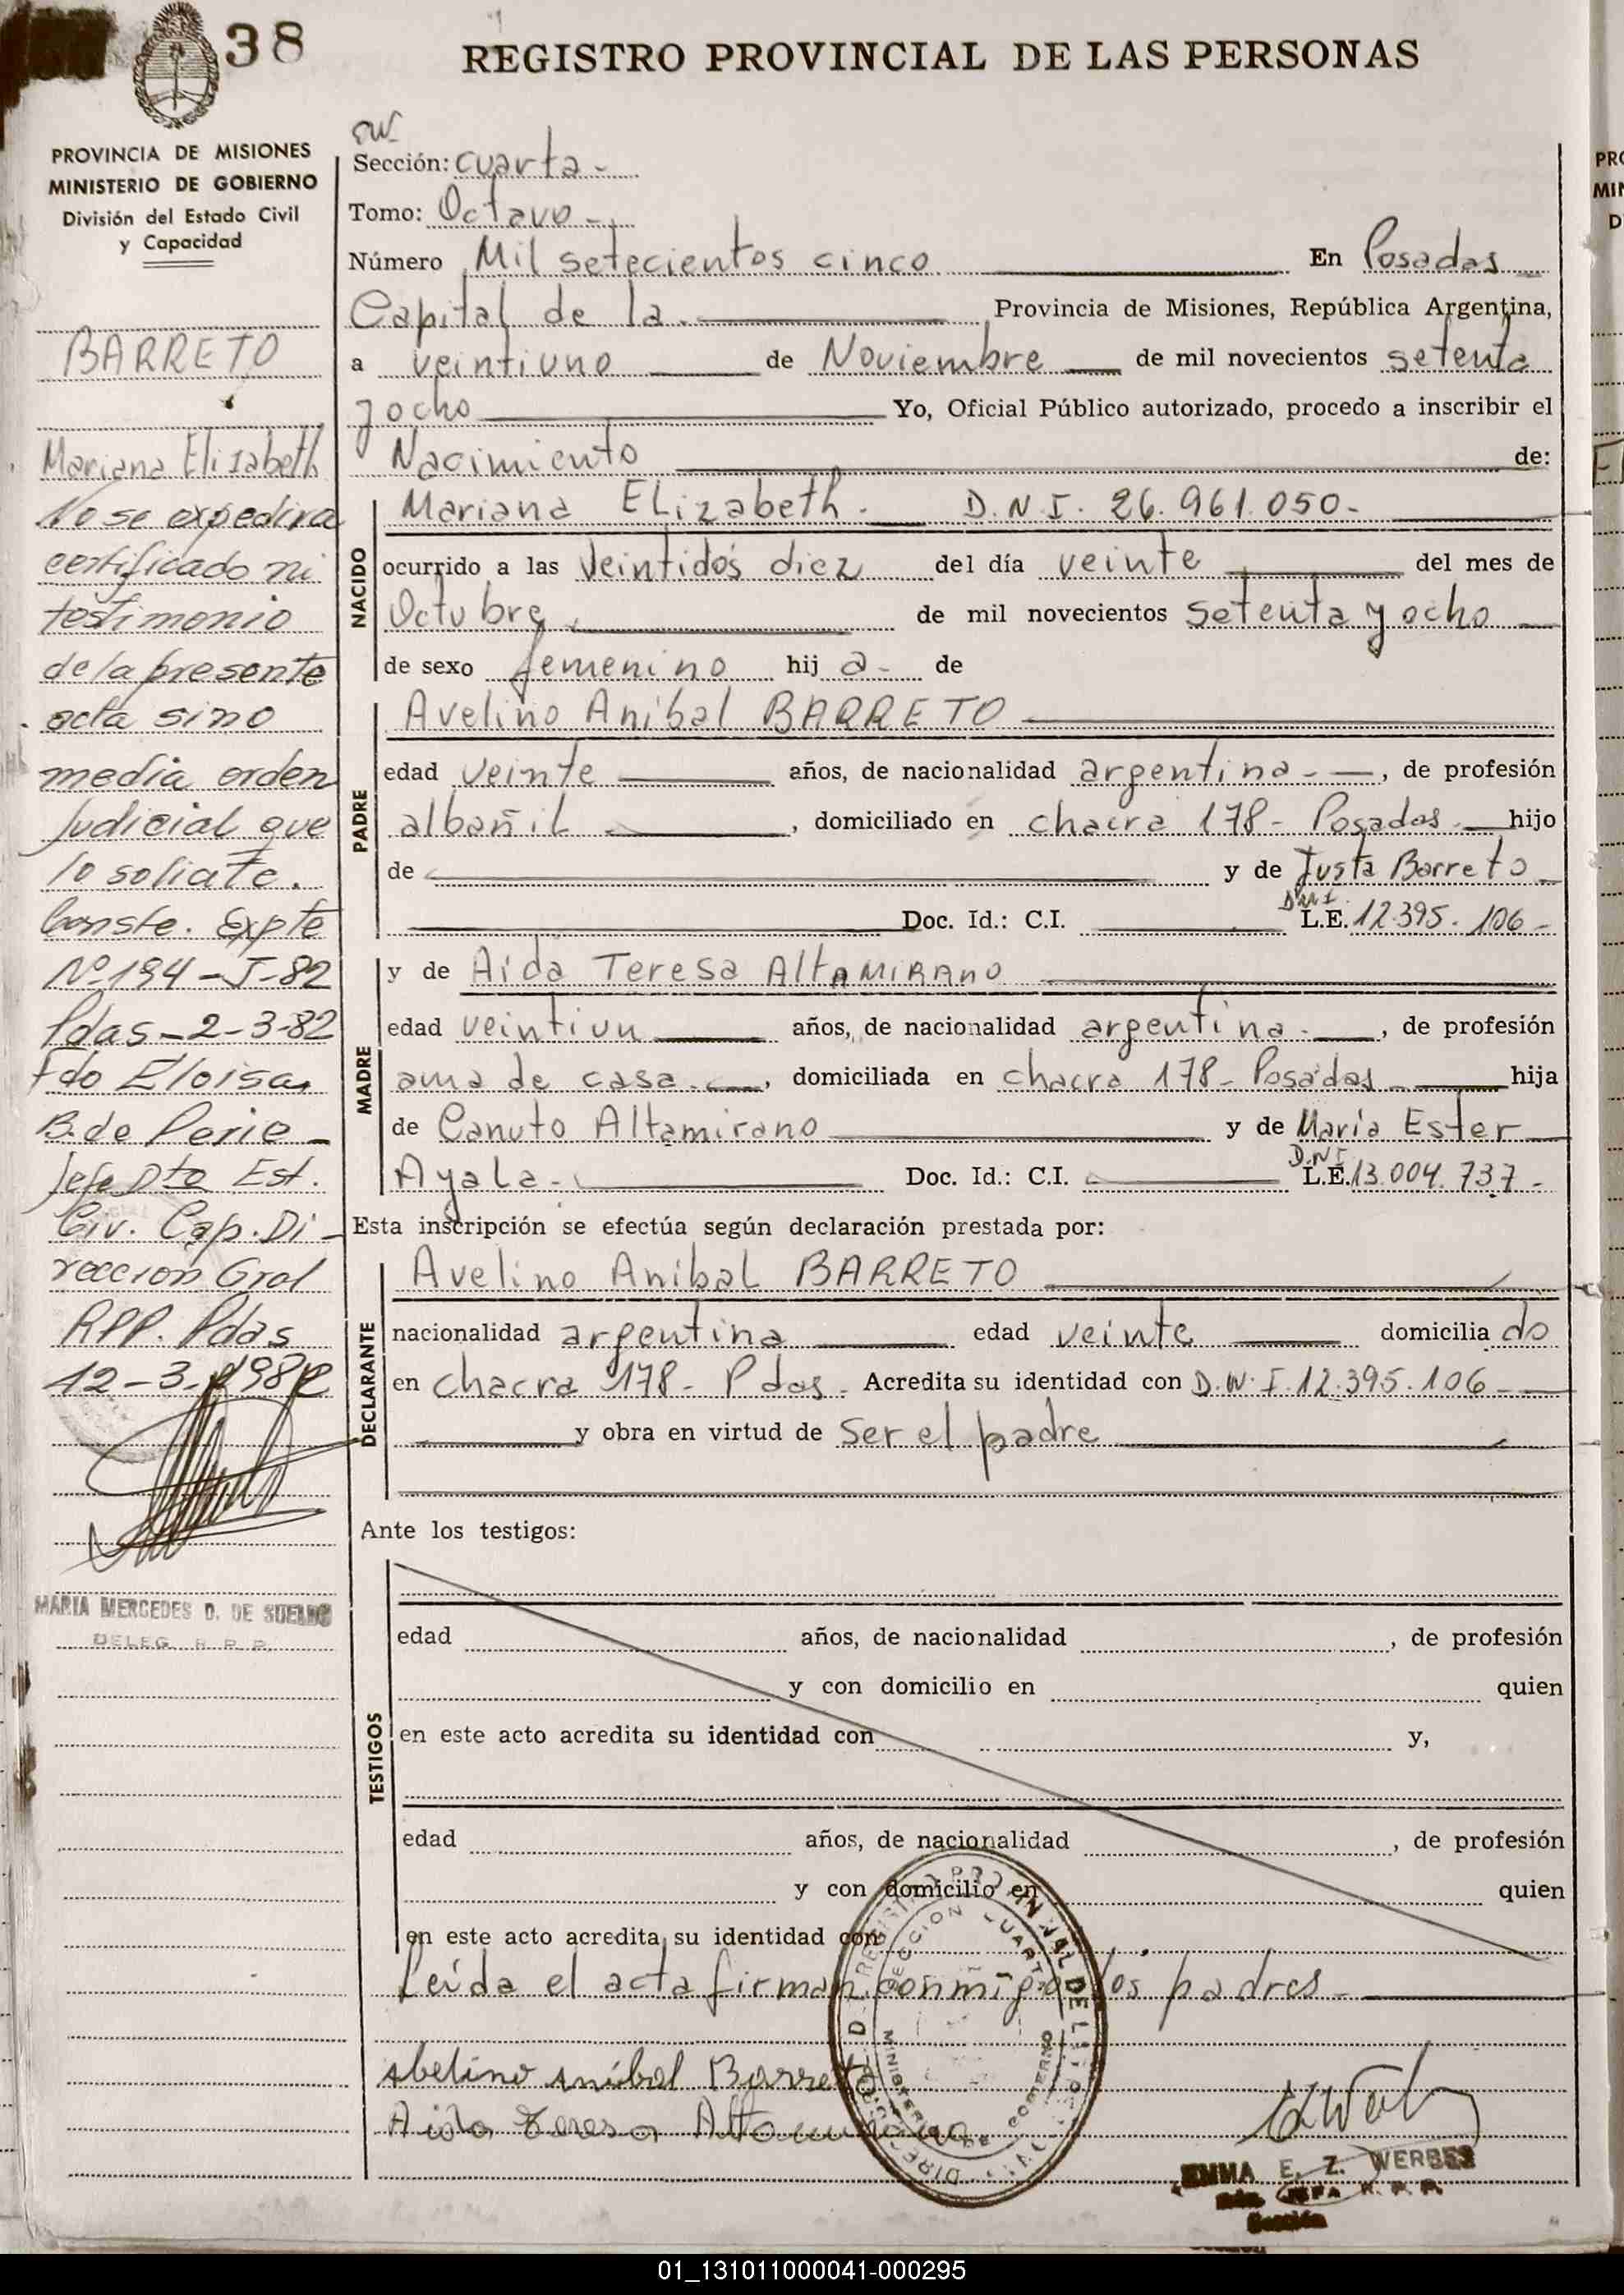 38
REGISTRO PROVINCIAL DE LAS PERSONAS
PROVINCIA DE MISIONES
MINISTERIO DE GOBIERNO
División del Estado Civil
y Capacidad
BARRETO
Mariana Elizabeth
No se expedira
certificado ni
testimonio
de la presente
acta sino
media orden
Judicial que
lo solicite.
Conste. Expte
Nº 194-J-82
Pdas-2-3-82
Fdo Eloisa
B. de Perie-
Jefe Dto Est.
Civ. Cap. Di-
reccion Gral
RPP. Pdas
12-3-1982
MARIA MERCEDES D. DE SUELDO
DELEG. R. P. P.
Sección: cuarta-
Tomo: Octavo-
Número Mil setecientos cinco En Posadas
Capital de la Provincia de Misiones, República Argentina,
a veintiuno de Noviembre de mil novecientos setenta
y ocho Yo, Oficial Público autorizado, procedo a inscribir el
Nacimiento de:
NACIDO
Mariana ELizabeth. D.N.I. 26.961.050-
ocurrido a las Veintidós diez del día veinte del mes de
Octubre de mil novecientos setenta y ocho
de sexo femenino hij a- de
PADRE
Avelino Anibal BARRETO
edad veinte años, de nacionalidad argentina-, de profesión
albañil, domiciliado en chacra 178- Posadas hijo
de y de Justa Barreto
Doc. Id.: C.I. D.N.I. L.E. 12.395.106-
MADRE
y de Aida Teresa AltAMIRANO
edad veintiun años, de nacionalidad argentina., de profesión
ama de casa., domiciliada en chacra 178- Posadas hija
de Canuto Altamirano y de María Ester
Ayala- Doc. Id.: C.I. D.N.I. L.E. 13.004.737-
Esta inscripción se efectúa según declaración prestada por:
DECLARANTE
Avelino Anibal BARRETO
nacionalidad argentina edad veinte domicilia do
en chacra 178- Pdas. Acredita su identidad con D.N.I. 12.395.106
y obra en virtud de ser el padre
Ante los testigos:
TESTIGOS
edad años, de nacionalidad , de profesión
y con domicilio en quien
en este acto acredita su identidad con y,
edad años, de nacionalidad , de profesión
y con domicilio en quien
en este acto acredita su identidad con
Leída el acta firman conmigo los padres-
Abelino Aníbal Barreto
Aida Teresa Altamirano
SECCION CUARTA
MINISTERIO DE GOBIERNO
EMMA E. Z. WERBES
JEFA R. P. P.
Sección
01_131011000041-000295